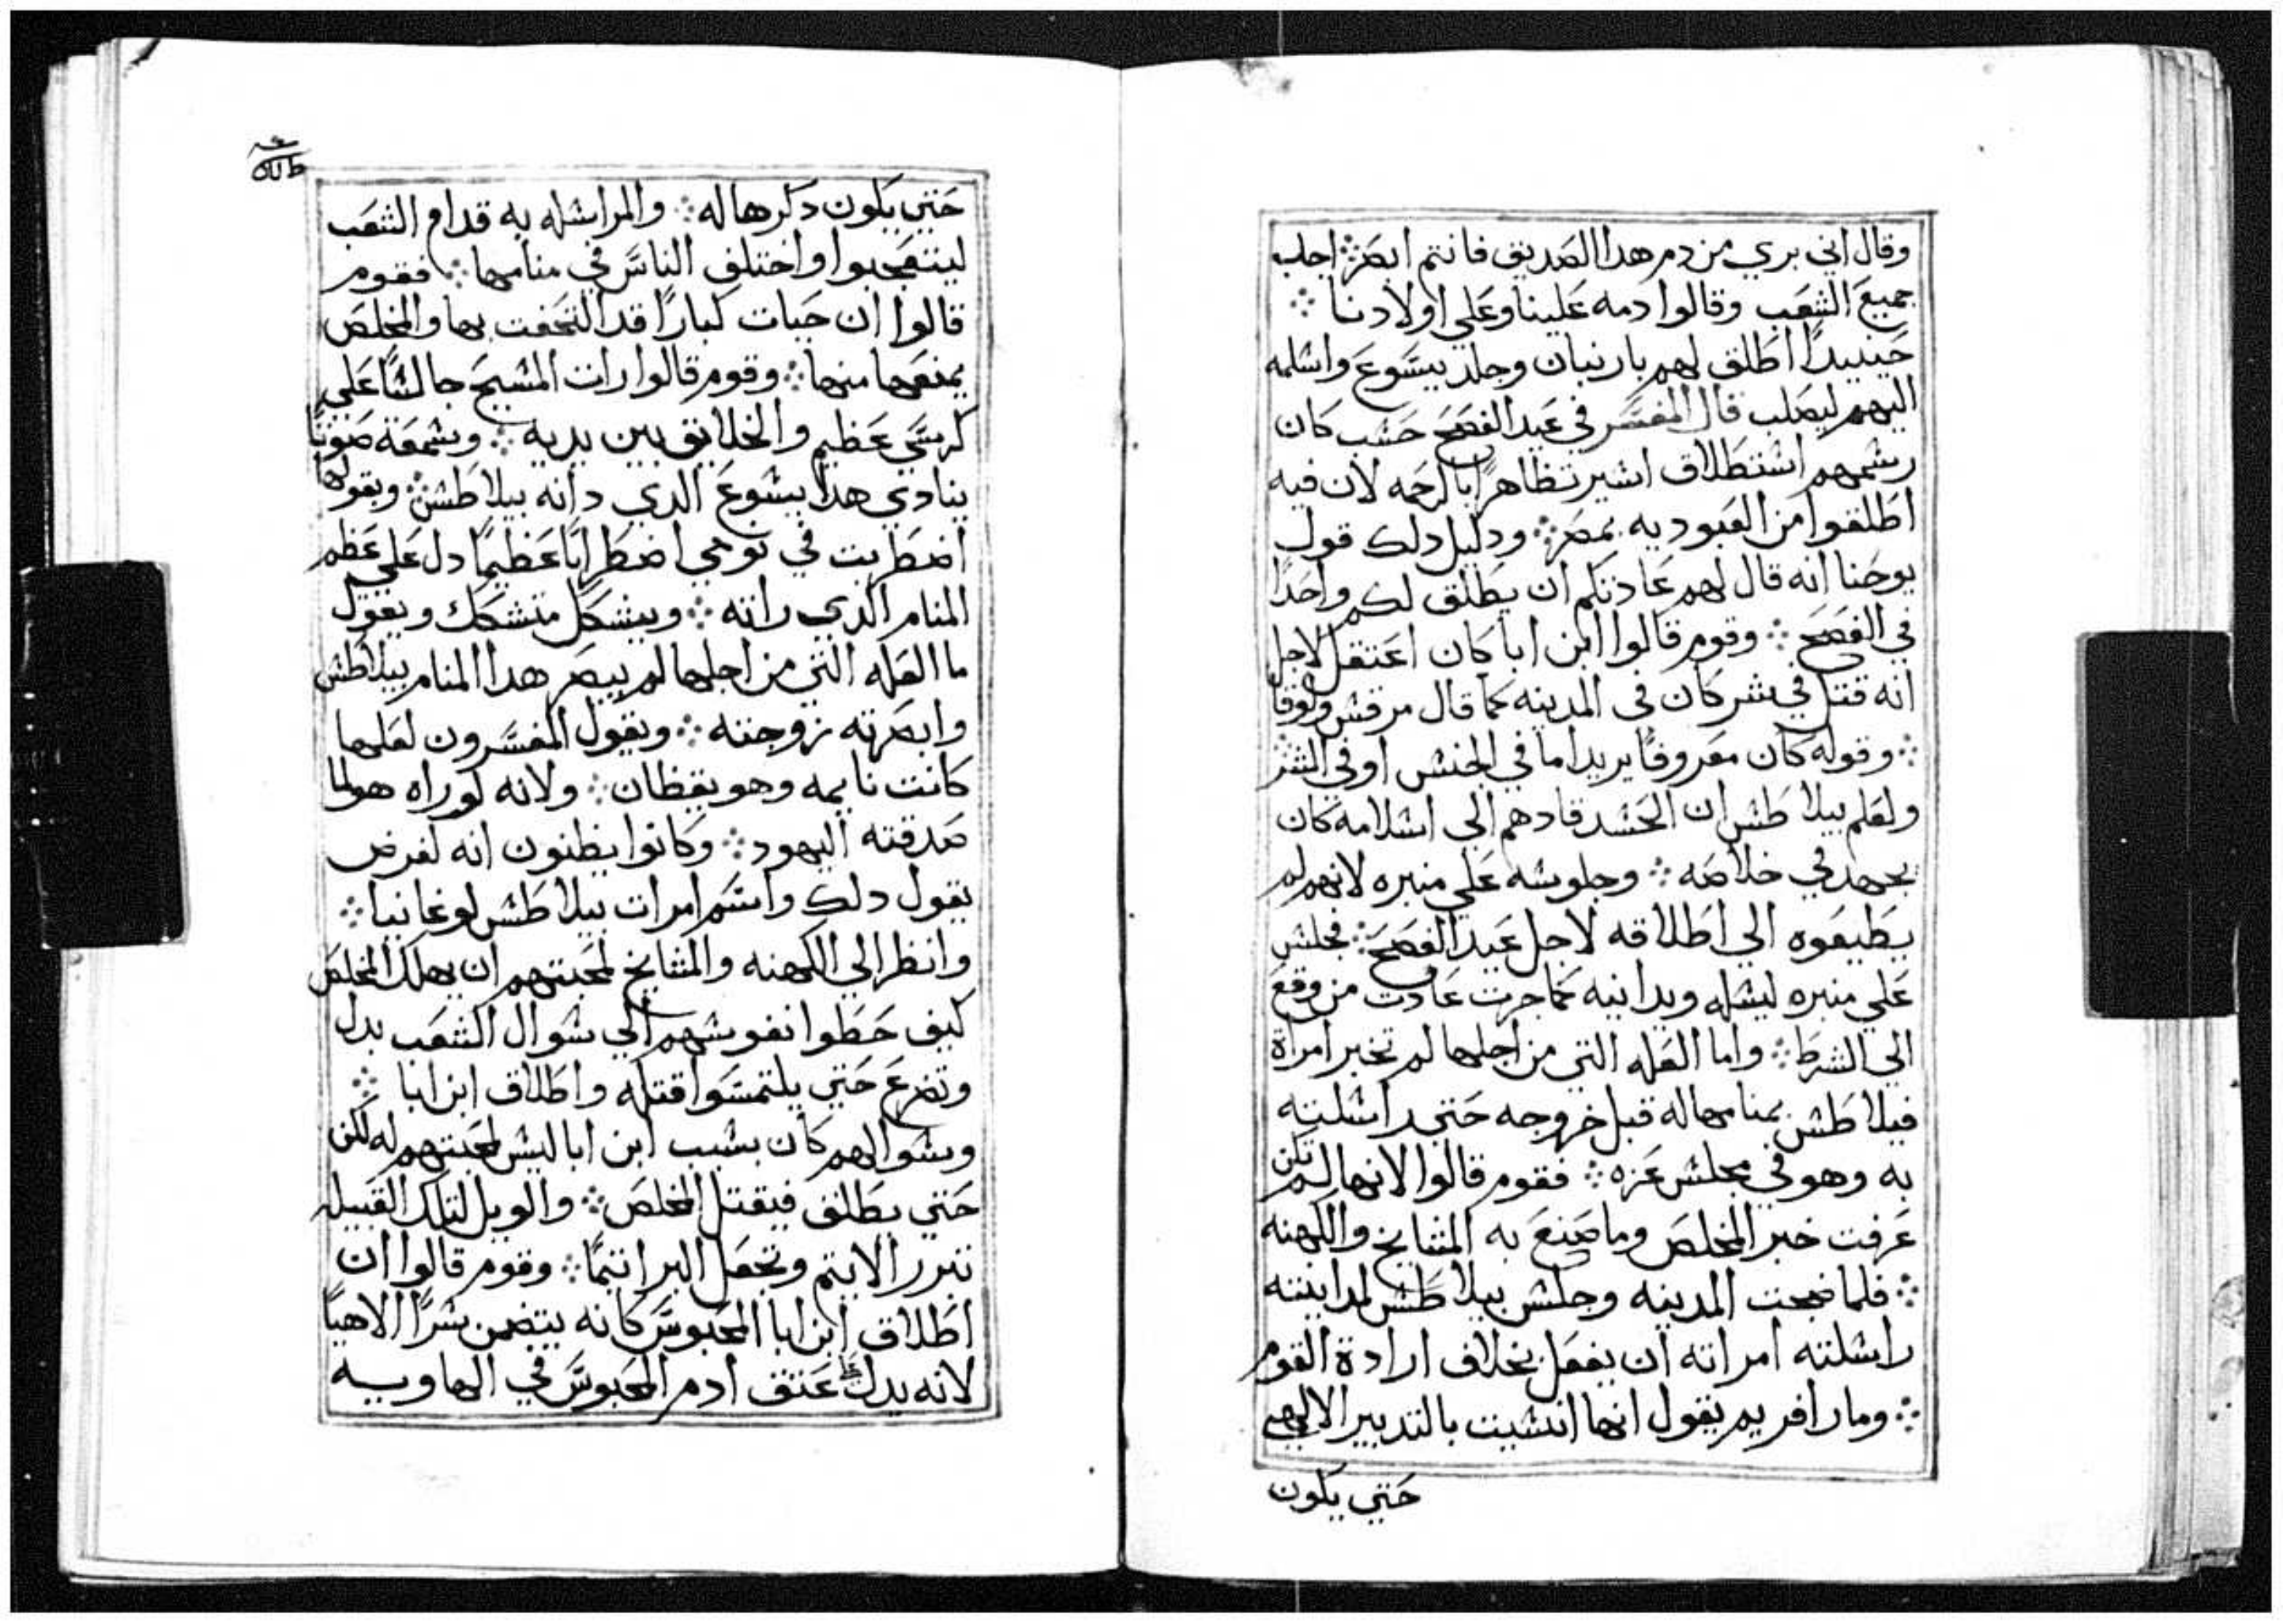 وقال اني بري من دم هدا الصديق فانتم ابصر ⁘ اجاب
جميع الشعب وقالوا دمه علينا وعلي اولادنا ⁘
حينيدا اطلق لهم باربنان وجلد يسوع واسلمه
اليهم ليصلب قال المفسر في عيد الفصح حسب كان
رسمهم استطلاق اسير تظاهرا بالرحمه لان فيه
اطلقوا من العبوديه بمصر ⁘ ودليل دلك قول
يوحنا انه قال لهم عادتكم ان يطلق لكم واحدا
في الفصح ⁘ وقوم قالوا ابن ابا كان اعتقل لاجل
انه قتل في شر كان في المدينه كما قال مرقس ولوقا
⁘ وقوله كان معروفا يريد اما في الجنس او في الشر
ولعلم بيلاطس ان الحسد قادهم الي اسلامه كان
يجهد في خلاصه ⁘ وجلوسه علي منبره لانهم لم
يطيعوه الي اطلاقه لاجل عيد الفصح ⁘ فجلس
علي منبره ليسله ويداينه كما جرت عادت من وقع
الي الشرط ⁘ واما العله التي من اجلها لم تخبر امراة
فيلاطس بمنامها له قبل خروجه حتي راسلته
به وهو في مجلس عزه ⁘ فقوم قالوا لانها لم تكن
عرفت خبر المخلص وما صنع به المشايخ والكهنه
⁘ فلما ضجت المدينه وجلس بيلاطس لمداينته
راسلته امراته ان يفعل بخلاف ارادة القوم
⁘ ومار افريم يقول انها انسيت بالتدبير الالهي
حتي يكون
حتي يكون دكرها له ⁘ والمراسله به قدام الشعب
ليتعجبوا واختلف الناس في منامها ⁘ فقوم
قالوا ان حيات كبارا قد التحفت بها والمخلص
يمنعها منها ⁘ وقوم قالوا رات المسيح جالسا علي
كرسي عظيم والخلايق بين يديه ⁘ وسمعة صوتا
ينادي هدا يسوع الدي دانه بيلاطس ⁘ وبقولها
اضطربت في نومي اضطرابا عظيما دل علي عظم
المنام الدي راته ⁘ ويشكل متشكك ويقول
ما العله التي من اجلها لم يبصر هدا المنام بيلاطس
وابصرته زوجته ⁘ ويقول المفسرون لعلها
كانت نايمه وهو يقظان ⁘ ولانه لو راه هو لما
صدقته اليهود ⁘ وكانوا يظنون انه لغرض
يقول دلك واسم امرات بيلاطس لوغانيا ⁘
وانظر الي الكهنه والمشايخ لمحبتهم ان يهلك المخلص
كيف حطوا نفوسهم الي سوال الشعب بدل
وتضرع حتي يلتمسوا قتله واطلاق ابن ابا ⁘
وسوالهم كان بسبب ابن ابا ليس لمحبتهم له لكن
حتي يطلق فيقتل المخلص ⁘ والويل لتلك القبيله
تبرر الايتم وتجعل البر ايتما ⁘ وقوم قالوا ان
اطلاق ابن ابا المحبوس كانه يتضمن سرا الاهيا
لانه يدل عتق ادم المحبوس في الهاويه